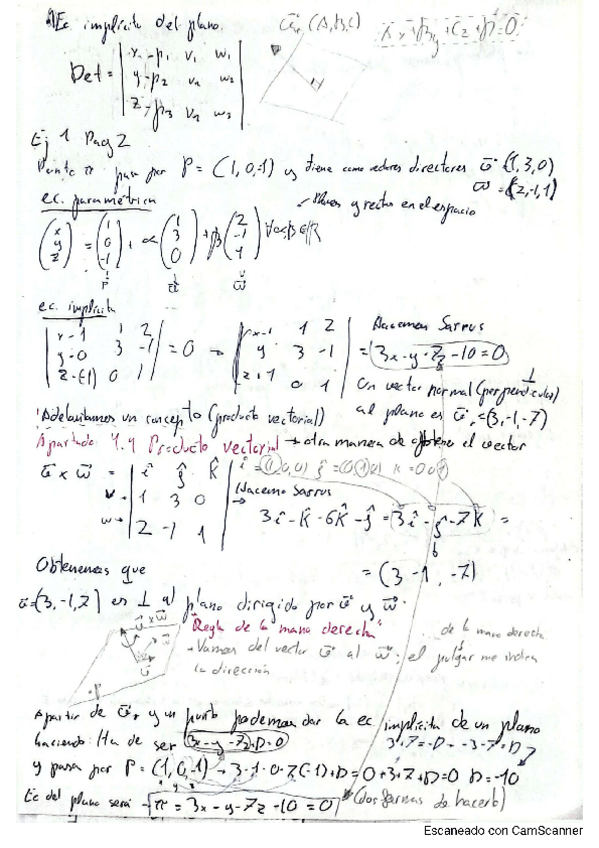 Ec implícita del plano. (A,B,C) Ax+By+Cz+D=0
Det = | x-p1 v1 w1 |
| y-p2 v2 w2 |
| z-p3 v3 w3 |
Ej 1 Pag 2
pasa por P = (1,0,-1) y tiene como vectores directores (1,3,0)
w = (2,-1,1)
ec. paramétrica
Planos y rectas en el espacio
(x y z) = (1 0 -1) + α (1 3 0) + β (2 -1 1) ∀α,β∈R
ec. implícita
| x-1 1 2 |
| y-0 3 -1 | = 0 →
| z-(-1) 0 1 |
| x-1 1 2 |
| y 3 -1 |
| z+1 0 1 |
Hacemos Sarrus
= 3x-y-7z-10=0
Un vector normal (perpendicular)
al plano es = (3,-1,-7)
Adelantamos un concepto (producto vectorial)
Apartado 1.4 Producto vectorial → otra manera de obtener el vector
| i j k |
| 1 3 0 |
| 2 -1 1 |
Hacemos Sarrus
3i - k - 6k - j = 3i - j - 7k =
= (3, -1, -7)
Obtenemos que
(3,-1,7) es ⊥ al plano dirigido por v y w.
"Regla de la mano derecha"
Vamos del vector v al w: el pulgar me indica
la dirección
de la mano derecha
A partir de y un punto podemos dar la ec implícita de un plano
haciendo: Ha de ser 3x-y-7z+D=0
y pasa por P = (1,0,-1) → 3·1-0-7(-1)+D=0 3+7+D=0 D=-10
Ec del plano será π = 3x-y-7z-10=0 (dos formas de hacerlo)
Escaneado con CamScanner